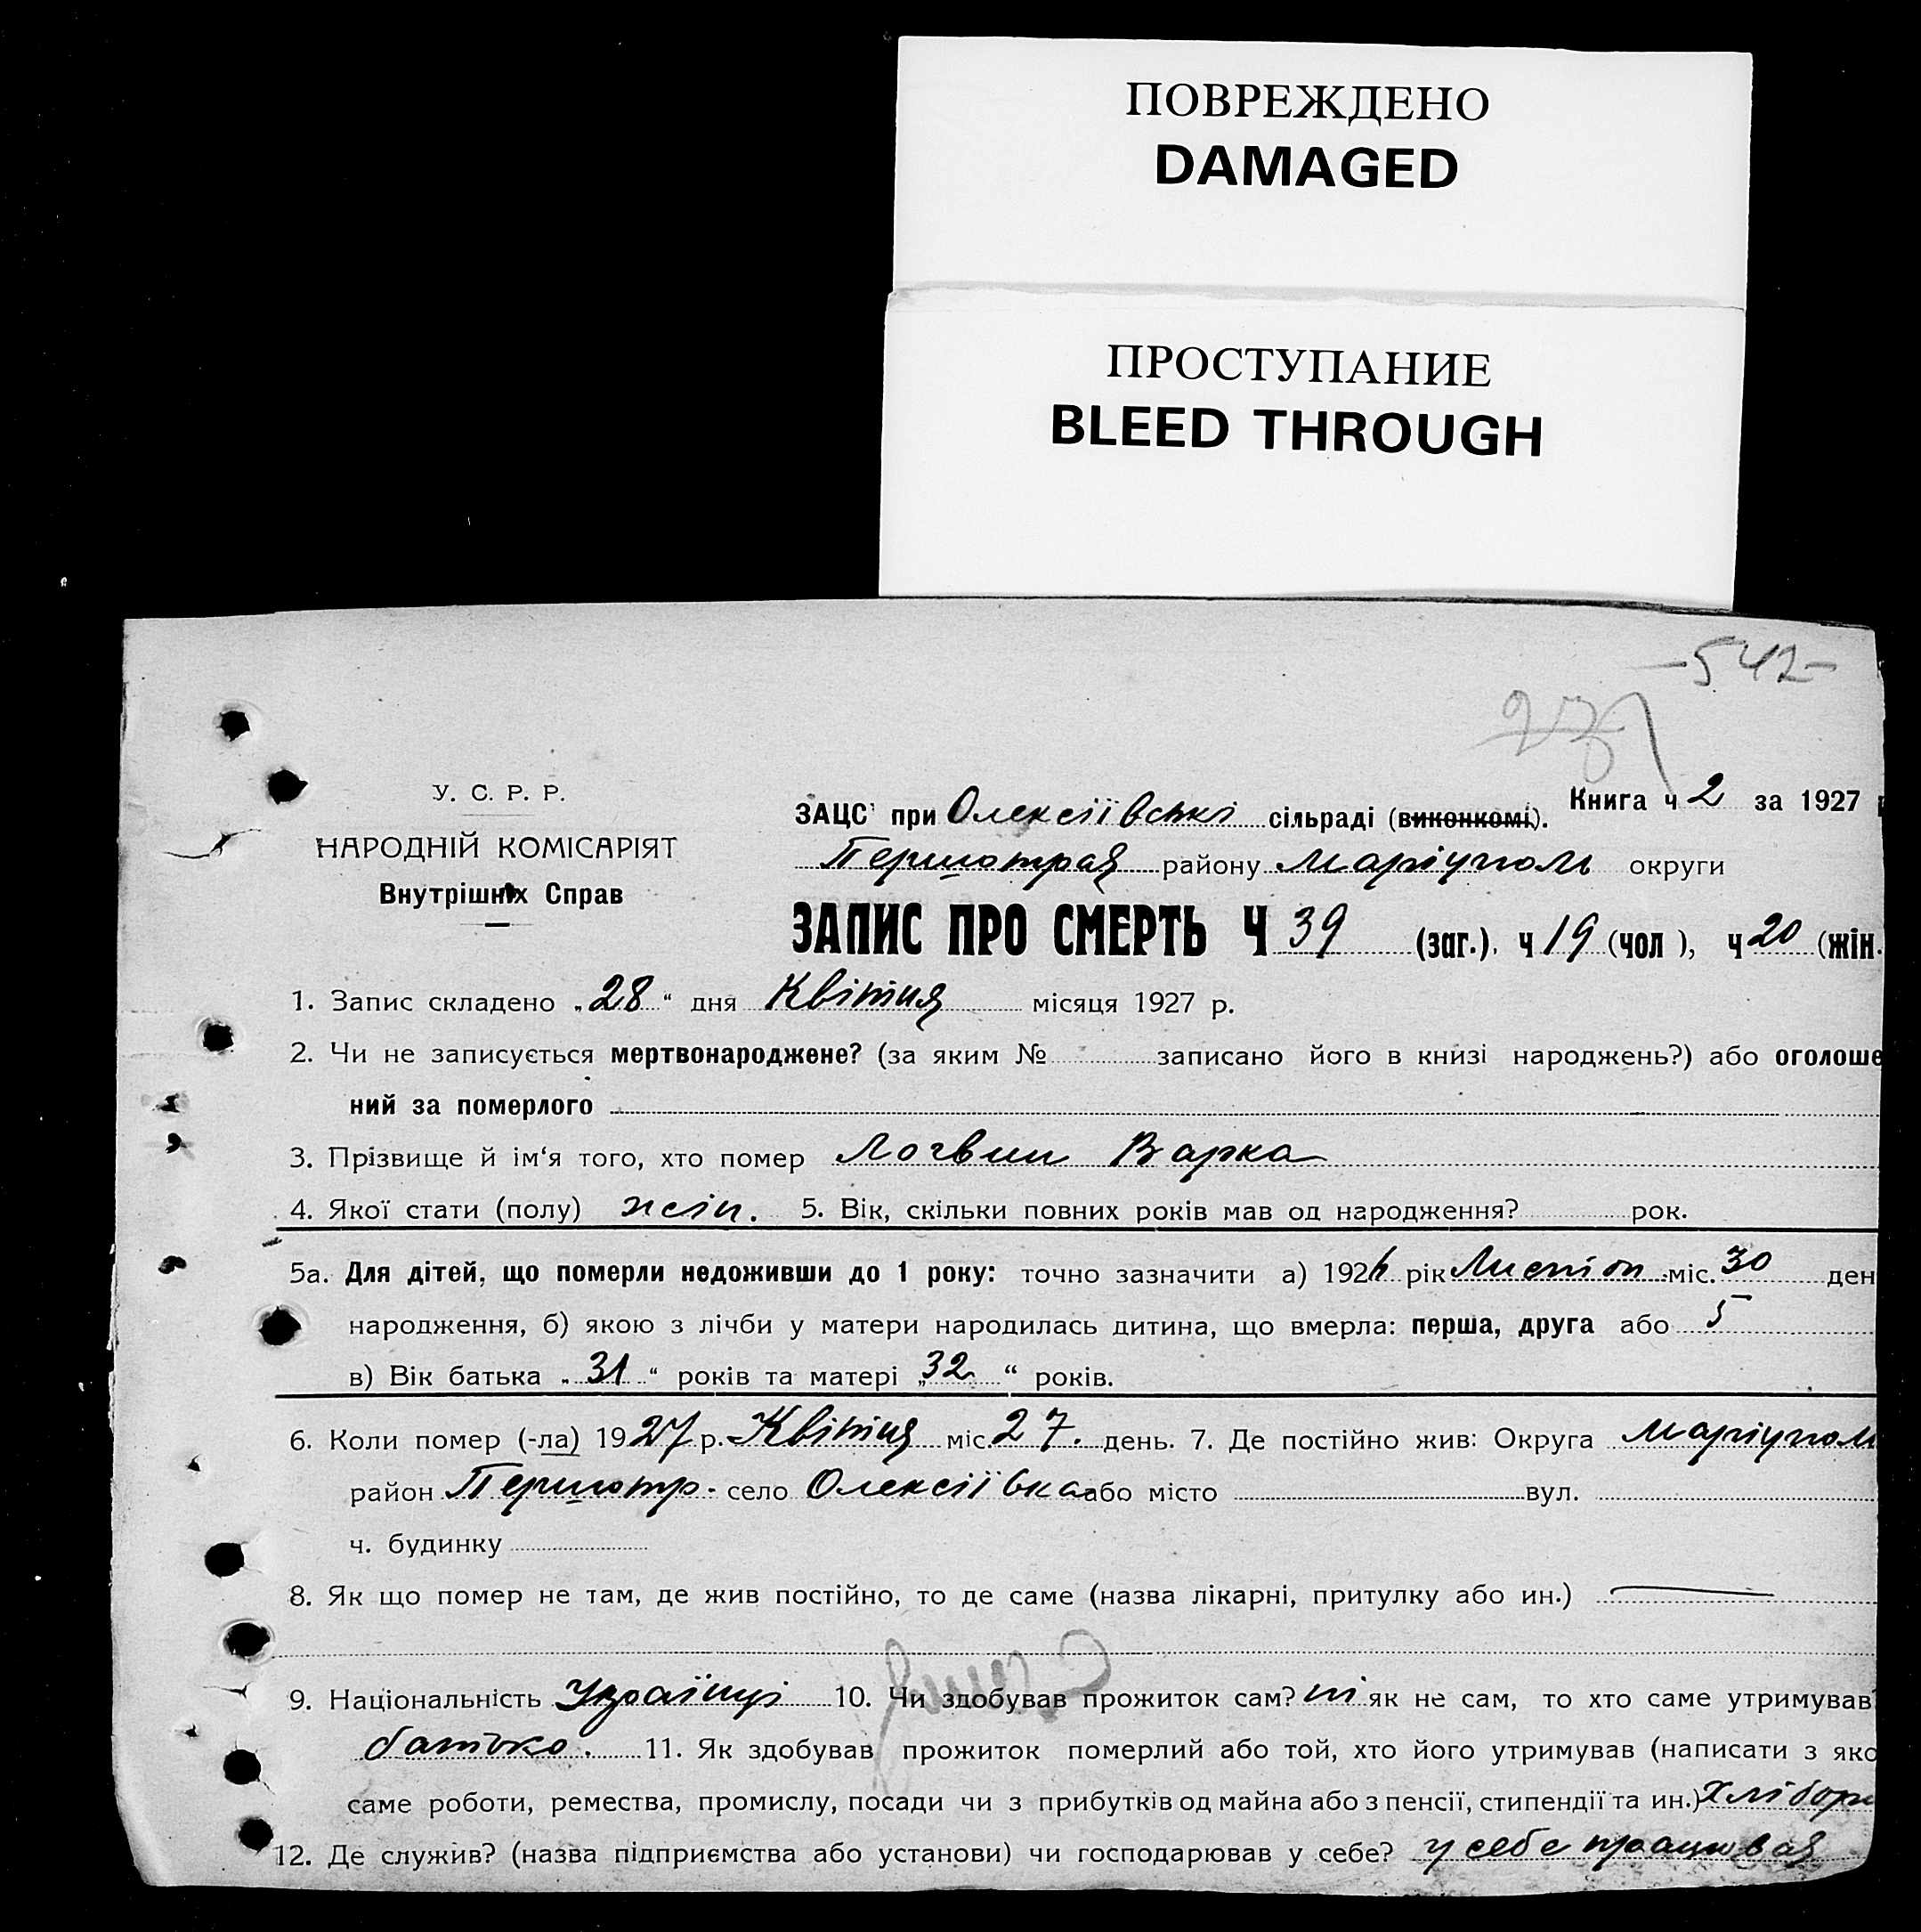 ПОВРЕЖДЕНО
DAMAGED
ПРОСТУПАНИЕ
BLEED THROUGH
-542-
У. С. Р. Р.
НАРОДНІЙ КОМІСАРІЯТ
Внутрішніх Справ
Книга ч 2 за 1927
ЗАЦС при Олексіївські сільраді (виконкомі).
Першотрав району Маріуполь округи
ЗАПИС ПРО СМЕРТЬ Ч 39 (заг.), ч 19 (чол), ч 20 (жін.
1. Запис складено „28“ дня Квітня місяця 1927 р.
2. Чи не записується мертвонароджене? (за яким № записано його в книзі народжень?) або оголоше
ний за померлого
3. Прізвище й ім‘я того, хто помер Логвин Варка
4. Якої стати (полу) жін. 5. Вік, скільки повних років мав од народження? рок.
5а. Для дітей, що померли недоживши до 1 року: точно зазначити а) 1926 рік Листоп міс. 30 ден
народження, б) якою з лічби у матери народилась дитина, що вмерла: перша, друга або 5
в) Вік батька „31“ років та матері „32“ років.
6. Коли помер (-ла) 1927 р. Квітня міс. 27. день. 7. Де постійно жив: Округа Маріупол
район Першотр. село Олексіївка або місто вул.
ч. будинку
8. Як що помер не там, де жив постійно, то де саме (назва лікарні, притулку або ин.) —
9. Національність Українці 10. Чи здобував прожиток сам? ні як не сам, то хто саме утримував
батько. 11. Як здобував прожиток померлий або той, хто його утримував (написати з яко
саме роботи, ремества, промислу, посади чи з прибутків од майна або з пенсії, стипендії та ин.) Хлібор
12. Де служив? (назва підприємства або установи) чи господарював у себе? у себе працював